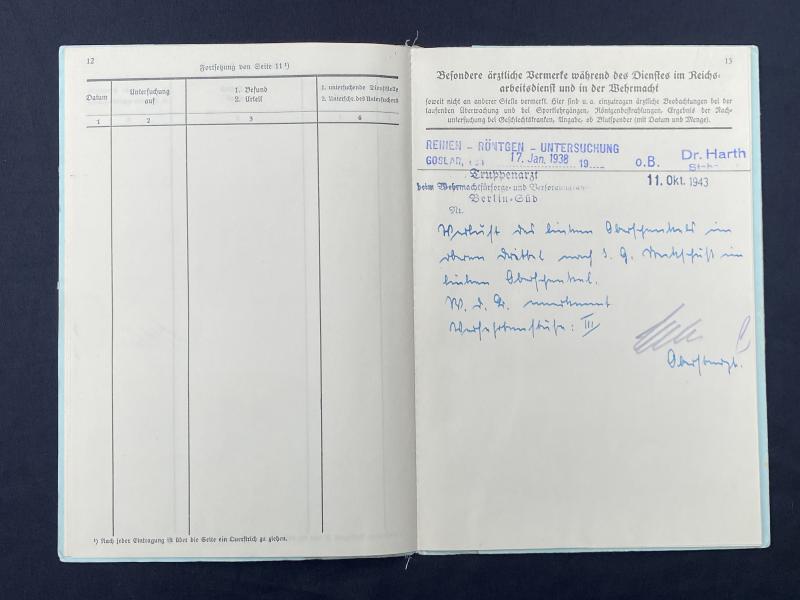 12
Fortsetzung von Seite 11 ¹)
Datum
Untersuchung
auf
1. Befund
2. Urteil
1. untersuchende Dienststelle
2. Unterschr. des Untersuchend
1 2 3 4
¹) Nach jeder Eintragung ist über die Seite ein Querstrich zu ziehen.
13
Besondere ärztliche Vermerke während des Dienstes im Reichs-
arbeitsdienst und in der Wehrmacht
soweit nicht an anderer Stelle vermerkt. Hier sind u. a. einzutragen ärztliche Beobachtungen bei der
laufenden Überwachung und bei Sportlehrgängen, Röntgenbestrahlungen, Ergebnis der Nach-
untersuchung bei Geschlechtskranken, Angabe, ob Blutspender (mit Datum und Menge).
REIHEN - RÖNTGEN - UNTERSUCHUNG
GOSLAR, 17. Jan. 1938 19 o.B. Dr. Harth
Truppenarzt
beim Wehrmachtfürsorge- und Versorgungsamt
Berlin-Süd
11. Okt. 1943
Nr.
Verlust des linken Oberschenkels im
oberen Drittel nach I. G. Steckschuß im
linken Oberschenkel.
W. d. B. anerkannt
Versehrtenstufe: III
Oberstarzt.